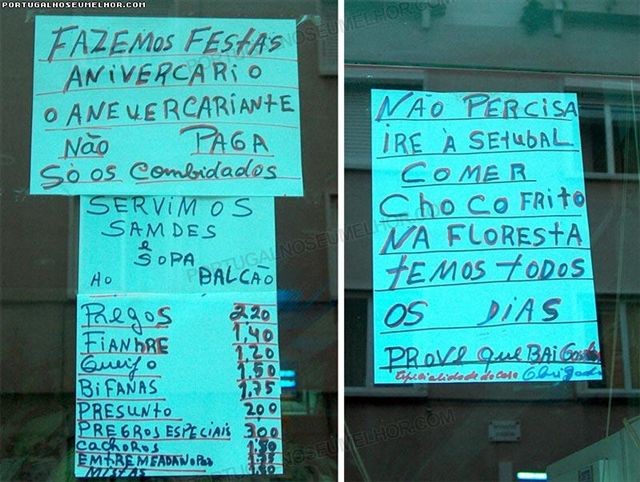 PORTUGALNOSEUMELHOR.COM
FAZEMOS FESTAS
ANIVERCARIO
O ANEVERCARIANTE
NÃO PAGA
SÓ OS COMBIDADOS
SERVIMOS
SAMDES
e
SOPA
AO BALCÃO
PREGOS 2,20
FIAMBRE 1,40
Queijo 1,20
1,50
BIFANAS 1,75
PRESUNTO 200
PREGROS ESPECIAIS 300
CACHOROS 1,50
EMTREMEADA NO PÃO
MISTAS
NÃO PERCISA
IRE À SETUBAL
COMER
CHOCO FRITO
NA FLORESTA
TEMOS TODOS
OS DIAS
PROVE QUE BAI Gostar
Especialidade da Casa Obrigado